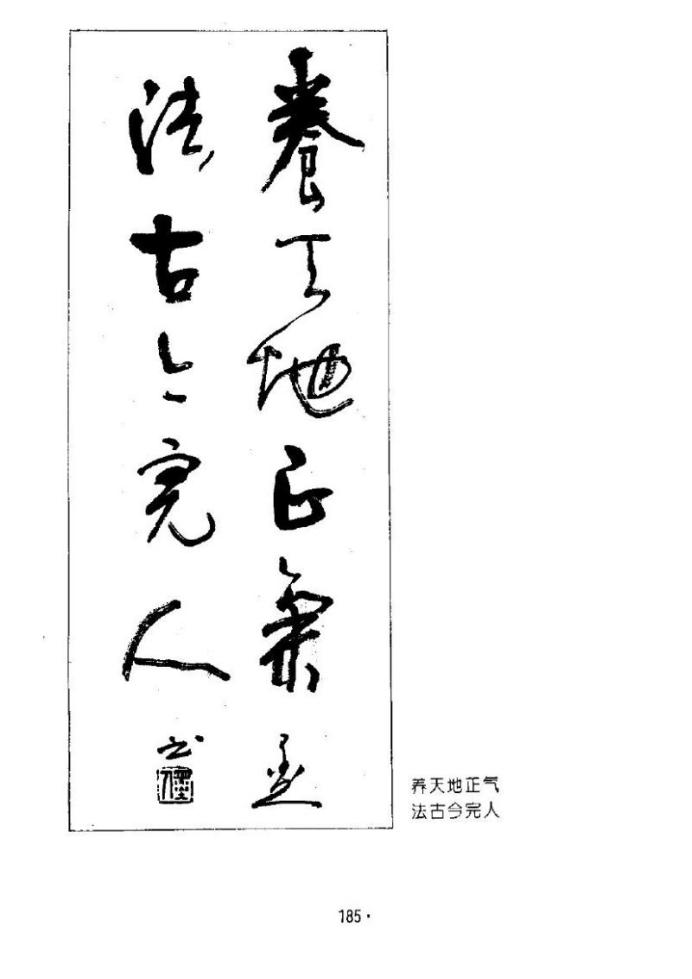 養天地正氣
法古今完人
养天地正气
法古今完人
185·